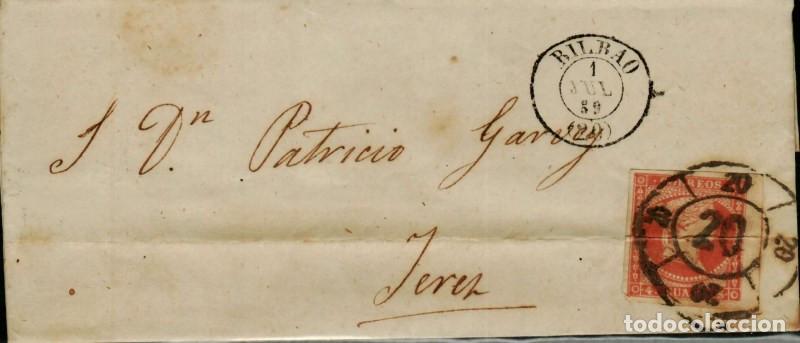 BILBAO
1
JUL
59
(20)
S Dn Patricio Garvey
Jerez
CORREOS
20
20
20
20
20
4 CUA 4
todocoleccion.net